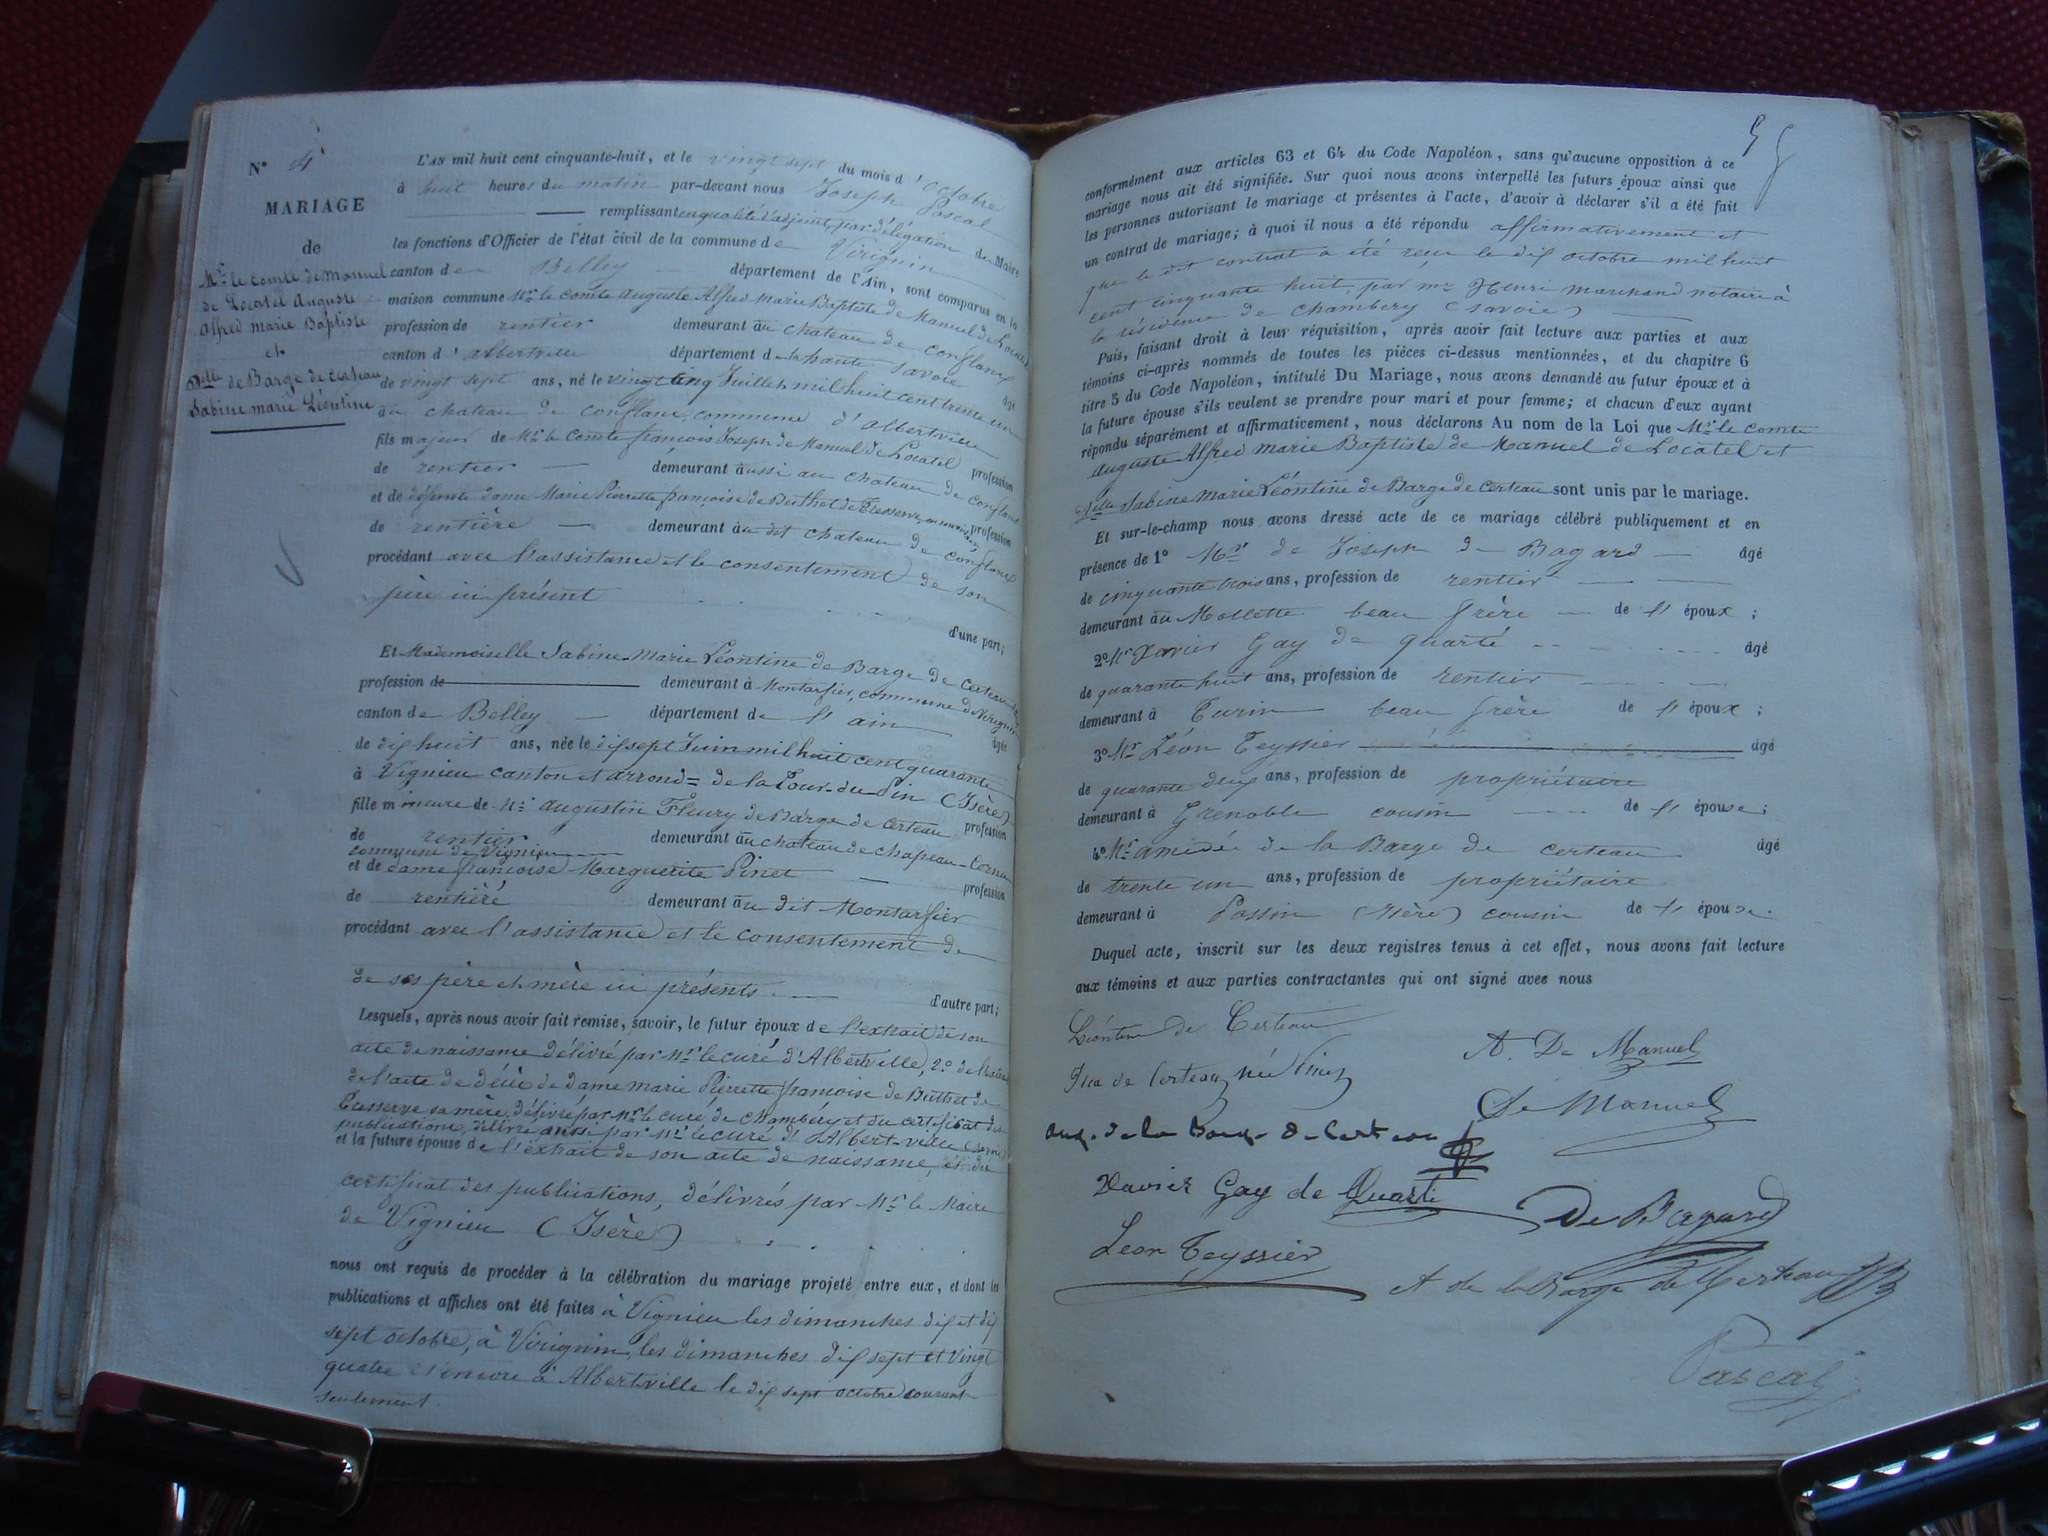 N° 4
MARIAGE
de
Mr le Comte de Manuel
de Locatel Auguste
Alfred marie Baptiste
et
Delle de Barge de Certeau
Sabine marie Léontine
L'AN mil huit cent cinquante-huit, et le vingt sept du mois d'Octobre
à huit heures du matin par-devant nous Joseph Pascal
remplissant en qualité d'adjoint, par délégation du Maire
les fonctions d'Officier de l'état civil de la commune de Virignin
canton de Belley département de l'Ain, sont comparus en la
maison commune Mr le comte Auguste Alfred Marie Baptiste de Manuel de Locatel
profession de rentier demeurant au chateau de conflans
canton d'albertville département de la haute savoie âgé
de vingt sept ans, né le vingt cinq Juillet mil huit cent trente un
au chateau de conflans, commune d'albertville
fils majeur de Mr le Comte françois Joseph de Manuel de Locatel profession
de rentier demeurant aussi au chateau de conflans
et de défunte dame Marie Pierrette françoise de Buthet de Tresserve, profession
de rentière demeurant au dit chateau de conflans
procédant avec l'assistance et le consentement de son
père ici présent
d'une part;
Et Mademoiselle Sabine Marie Léontine de Barge de certeau
profession de demeurant à Montarfier, commune de Virignin
canton de Belley département de l'ain âgée
de dix huit ans, née le dix sept Juin mil huit cent quarante
à Vignieu canton et arrond= de la Tour-du-Pin (Isère)
fille mineure de Mr augustin Fleury de Barge de certeau profession
de rentier demeurant au chateau de chapeau-Cornu
commune de Vignieu
et de dame françoise Marguerite Pinet profession
de rentière demeurant au dit Montarfier
procédant avec l'assistance et le consentement de
de ses père et mère ici présents
d'autre part;
Lesquels, après nous avoir fait remise, savoir, le futur époux de l'extrait de son
acte de naissance délivré par Mr le curé d'Albertville, 2° de
de l'acte de décès de dame marie Pierrette françoise de Buthet de
Tresserve sa mère, délivré par Mr le curé de chambéry et du certificat des
publications, délivré aussi par Mr le curé d'Albert-ville (Savoie)
et la future épouse de l'extrait de son acte de naissance, et du
certificat des publications, délivrés par Mr le Maire
de Vignieu (Isère)
nous ont requis de procéder à la célébration du mariage projeté entre eux, et dont les
publications et affiches ont été faites à Vignieu les dimanches dix et dix
sept octobre, à Virignin, les dimanches dix sept et vingt
quatre et encore à Albertville le dix sept octobre courant
seulement.
conformément aux articles 63 et 64 du Code Napoléon, sans qu'aucune opposition à ce
mariage nous ait été signifiée. Sur quoi nous avons interpellé les futurs époux ainsi que
les personnes autorisant le mariage et présentes à l'acte, d'avoir à déclarer s'il a été fait
un contrat de mariage; à quoi il nous a été répondu affirmativement et
que le dit contrat a été reçu le dix octobre mil huit
cent cinquante huit, par me Henri marchand notaire à
la résidence de chambéry (savoie)
Puis, faisant droit à leur réquisition, après avoir fait lecture aux parties et aux
témoins ci-après nommés de toutes les pièces ci-dessus mentionnées, et du chapitre 6
titre 5 du Code Napoléon, intitulé Du Mariage, nous avons demandé au futur époux et à
la future épouse s'ils veulent se prendre pour mari et pour femme; et chacun d'eux ayant
répondu séparément et affirmativement, nous déclarons Au nom de la Loi que Mr le comte
Auguste Alfred Marie Baptiste de Manuel de Locatel et
Delle Sabine Marie Léontine de Barge de certeau sont unis par le mariage.
Et sur-le-champ nous avons dressé acte de ce mariage célébré publiquement et en
présence de 1° Mr de Joseph de Bagard âgé
de cinquante trois ans, profession de rentier
demeurant au Mollette beau frère de l'époux;
2° Mr Xavier Gay de quarté âgé
de quarante huit ans, profession de rentier
demeurant à Turin beau frère de l'époux;
3° Mr Léon Teyssier âgé
de quarante deux ans, profession de propriétaire
demeurant à Grenoble cousin de l'épouse;
4° Mr amédée de la Barge de certeau âgé
de trente un ans, profession de propriétaire
demeurant à Passin (Isère) cousin de l'épouse.
Duquel acte, inscrit sur les deux registres tenus à cet effet, nous avons fait lecture
aux témoins et aux parties contractantes qui ont signé avec nous
Léontine de Certeau
A. De Manuel
Fca de Certeau née Pinet
De Manuel
Aug. de la Barge de Certeau
Xavier Gay de Quarti
De Bagard
Leon Teyssier
A de la Barge de Certeau
Pascal